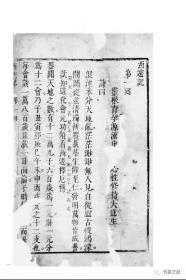 西遊記
第一回
靈根育孕源流出
心性修持大道生
詩曰
混沌未分天地亂茫茫渺渺無人見自從盤古破鴻濛
開闢從茲清濁辨覆載群生仰至仁發明萬物皆成善
欲知造化會元功須看西遊釋厄傳
蓋聞天地之數有十二萬九千六百歲為一元將一元分
為十二會乃子丑寅卯辰巳午未申酉戌亥之十二支也
每會該一萬八百歲且就一日而論子時